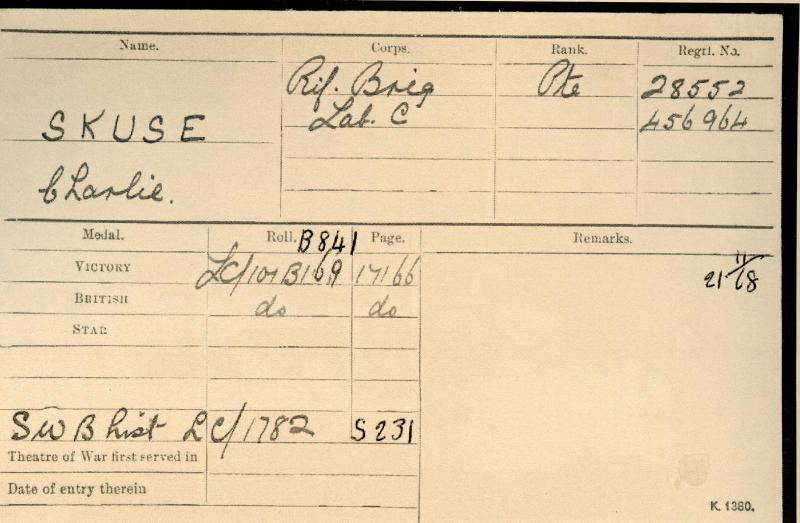 Name. Corps. Rank. Regtl. No.
Rif. Brig Pte 28552
SKUSE Lab. C 456964
Charlie.
Medal. Roll. B841 Page. Remarks.
VICTORY LC/101B169 17166
BRITISH do do
STAR
SWB List LC/1782 S231
Theatre of War first served in
Date of entry therein
K. 1380.